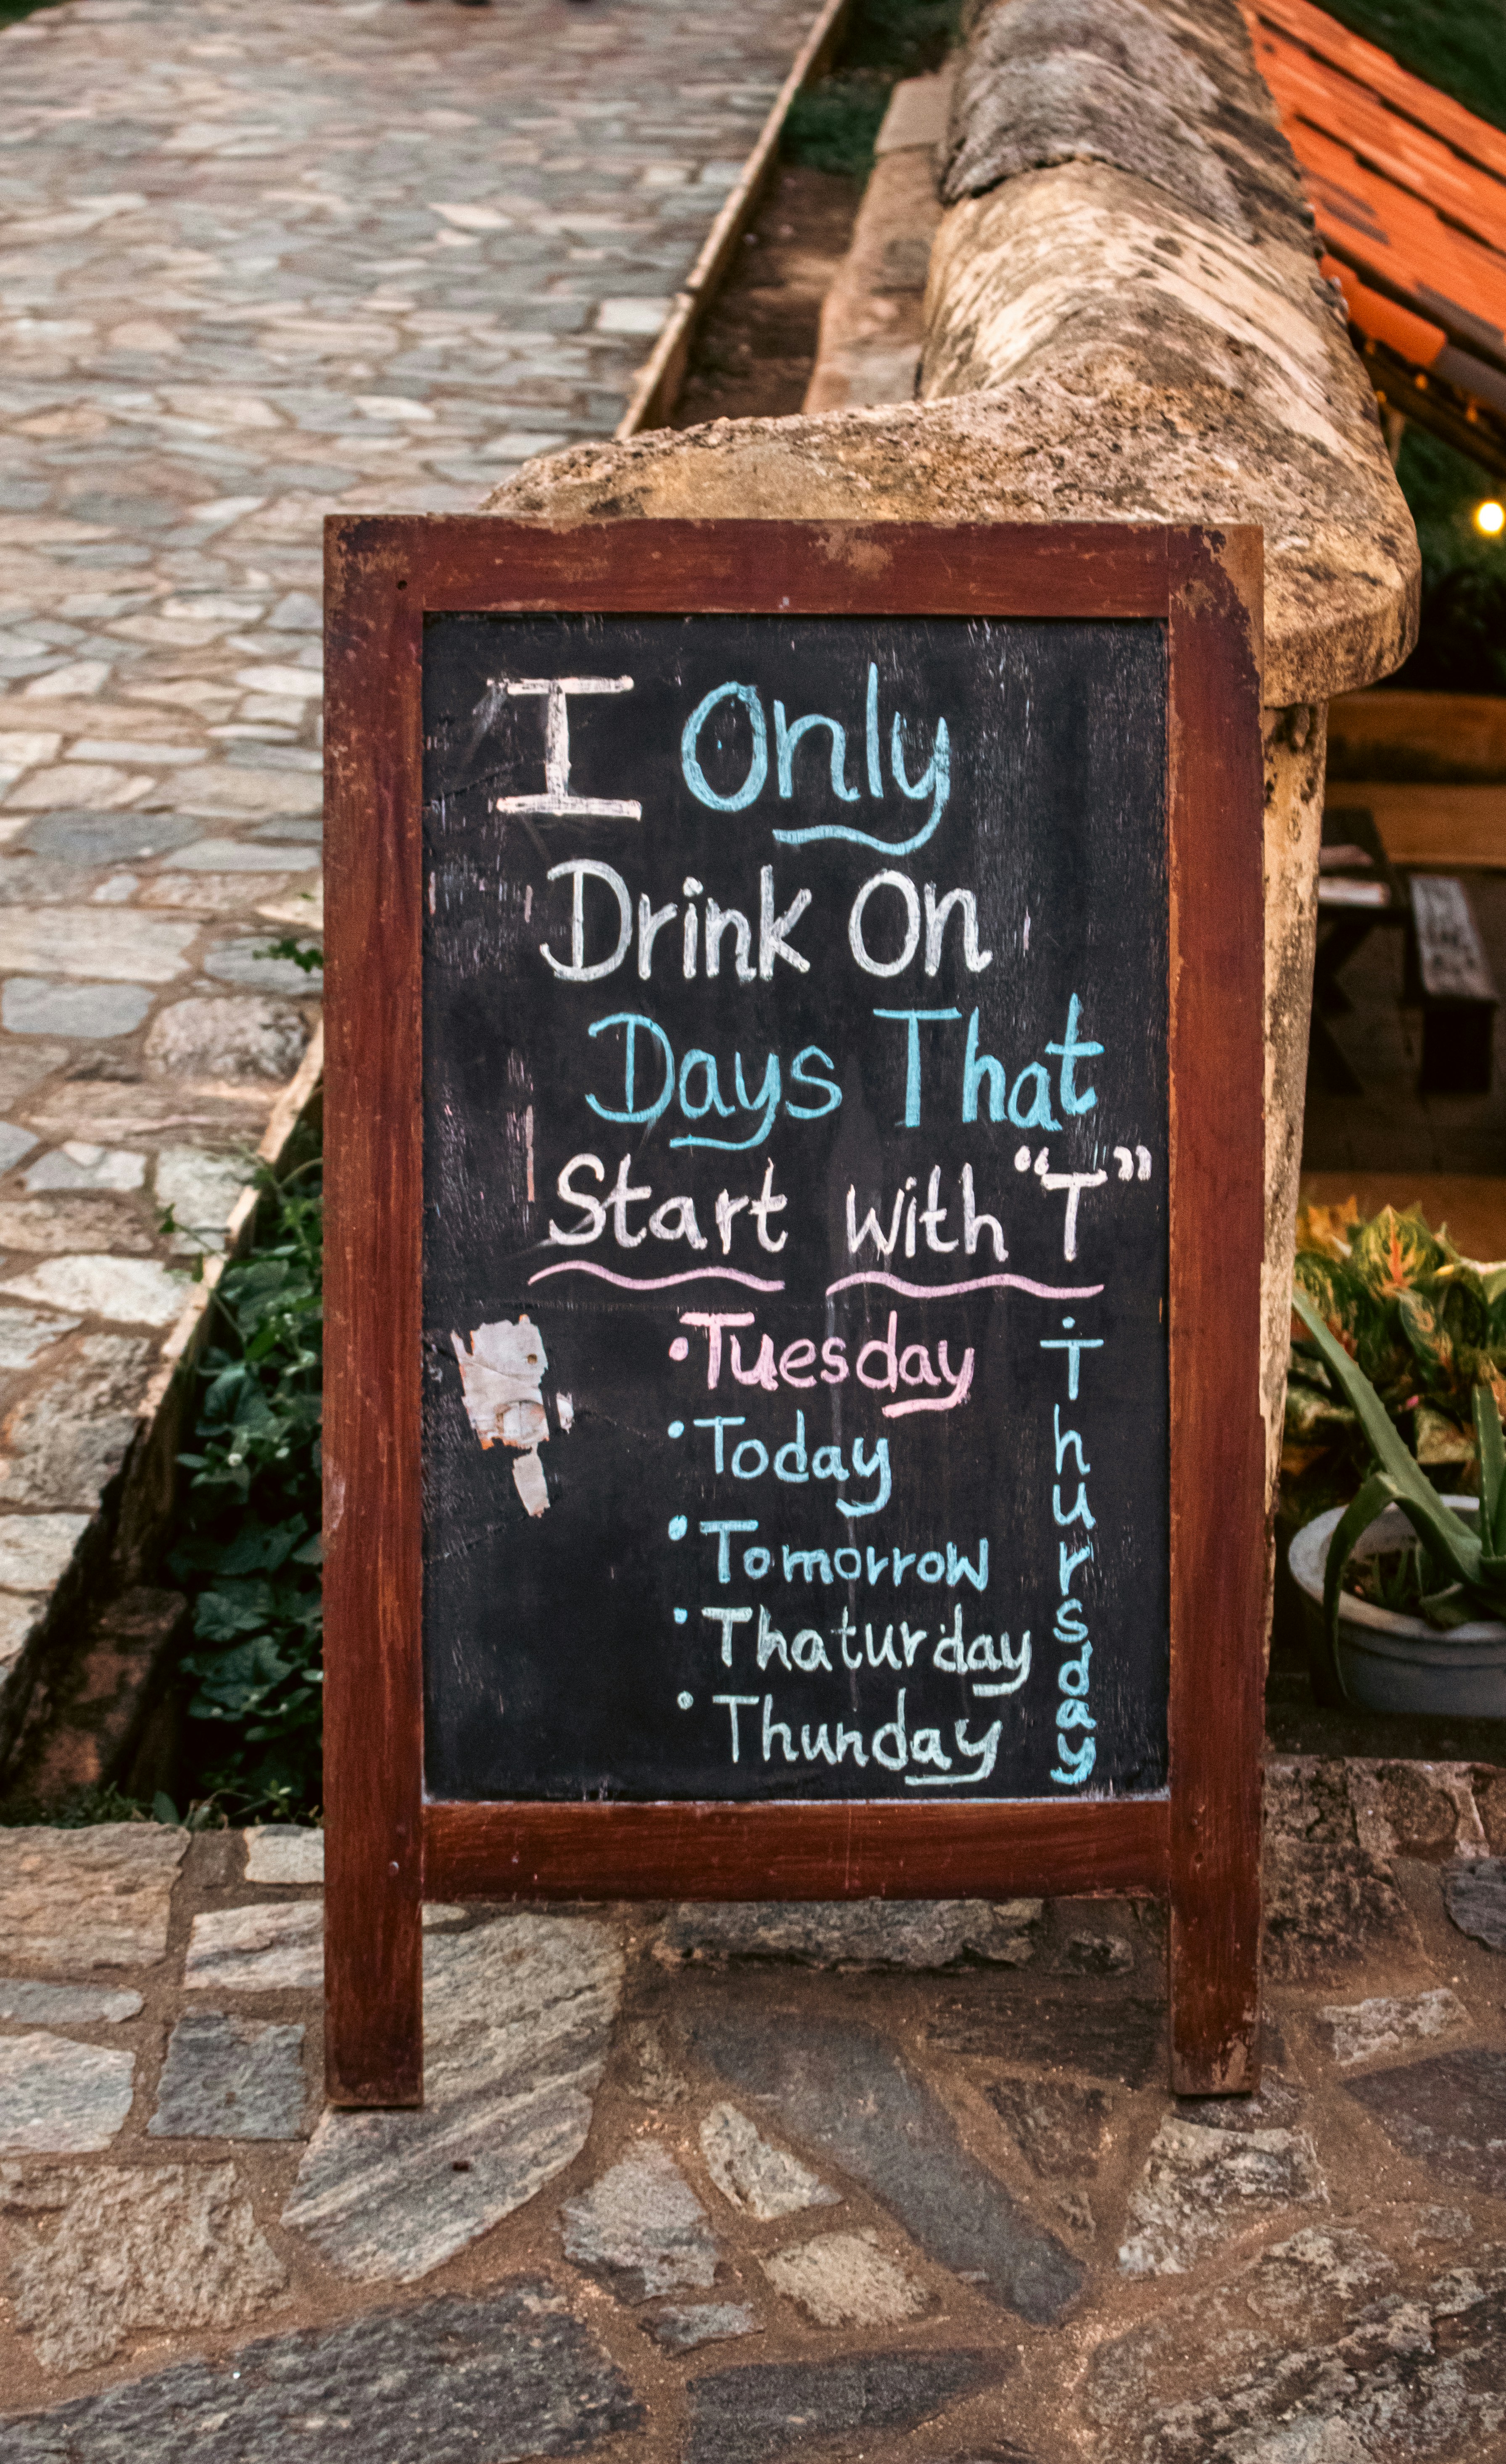 I Only
Drink On
Days That
Start with "T"
•Tuesday
•Today
•Tomorrow
•Thaturday
•Thunday
•Thursday